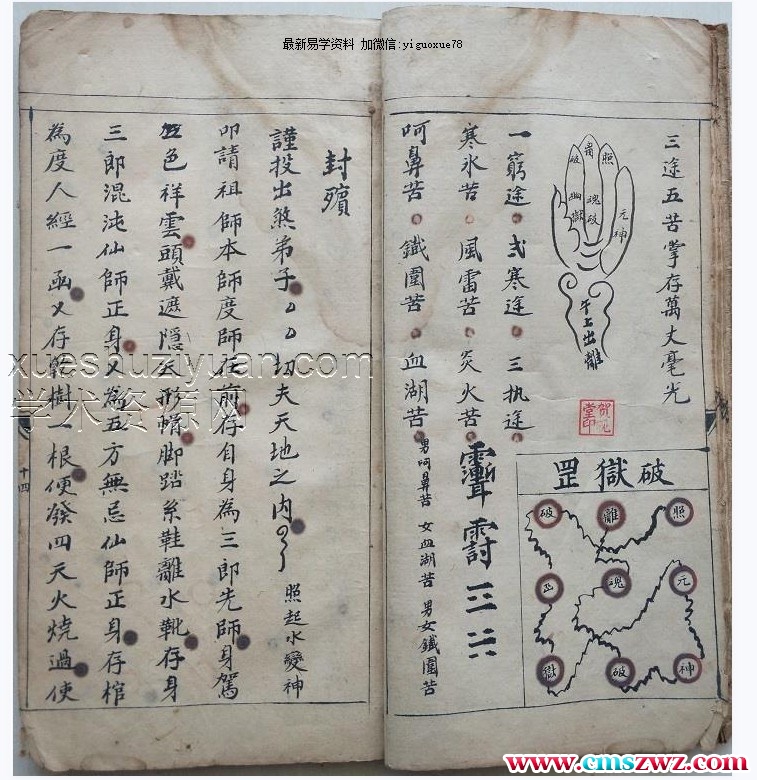 最新易学资料 加微信:yiguoxue78
三途五苦掌存萬丈毫光
照
破
幽獄
魂破
元神
上出離
破獄罡
照
離
破
元
魂
神
破
獄
一窮途 弍寒途 三执途
寒氷苦 風雷苦 炎火苦
呵鼻苦 鐵圍苦 血湖苦 男呵鼻苦 女血湖苦 男女鐵圍苦
封殯
謹投出煞弟子 切夫天地之内 照起水變神
叩請祖師本師度師在前存自身為三郎先師身駕
五色祥雲頭戴遮隱天形帽脚踏糸鞋離水靴存身
三郎混沌仙師正身又為五方無忌仙師正身存棺
為度人經一函又存乾樹一根便發四天火燒過使
十四
xueshuziyuan.com
学术资源网
www.cmszwz.com